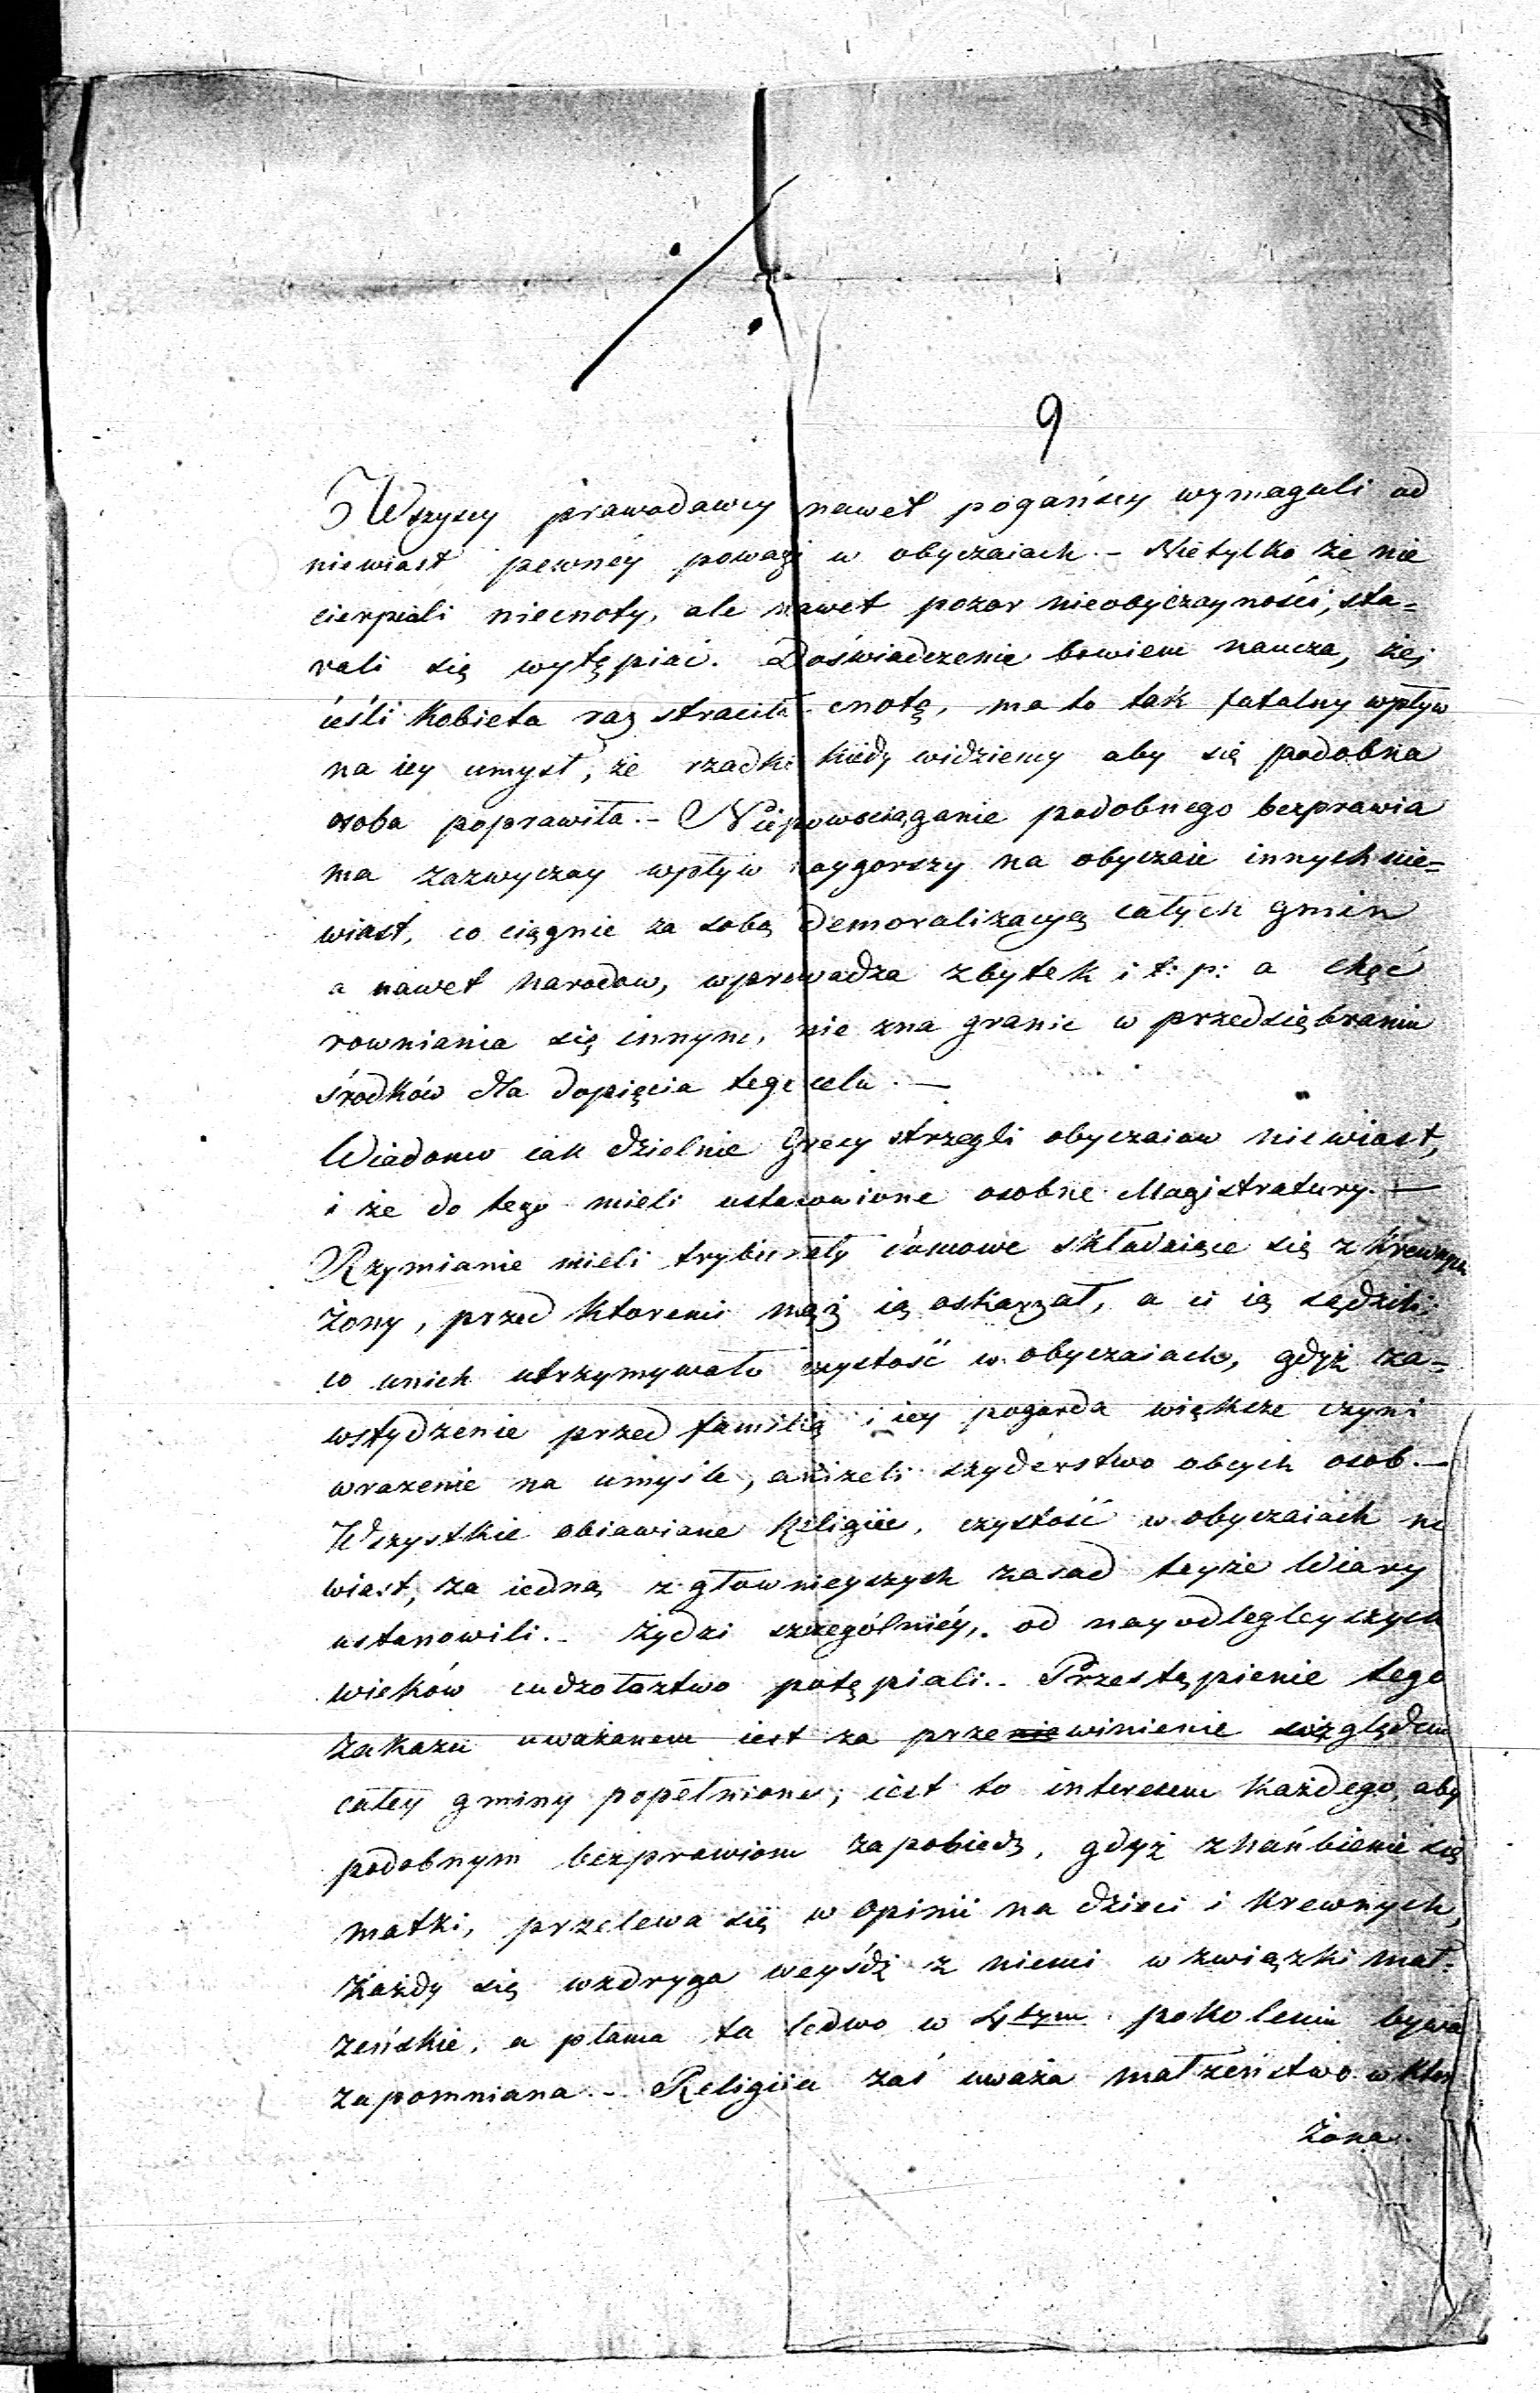 9
Wszyscy prawodawcy nawet pogańscy wymagali od
niewiast pewnéy powagi w obyczaiach. – Nietylko że nie
cierpieli niecnoty, ale nawet pozor nieobyczayności, sta=
rali się wytępiać. Doświadczenie bowiem naucza, żej
iéśli kobieta raz straciła cnotę, ma to tak fatalny wpływ
na iey umysł, że rzadko kiedy widziemy aby się podobna
osoba poprawiła. – Niepowsciąganie podobnego bezprawia
ma zazwyczay wpływ naygorszy na obyczaie innych nie=
wiast, co ciągnie za sobą demoralizacyą całych gmin
a nawet narodow, wprowadza zbytek i t: p: a chęć
rowniania się innym, nie zna granic w przedsiębraniu
środków dla dopięcia tego celu. —
Wiadomo iak dzielnie Grecy strzegli obyczaiow niewiast,
i że do tego mieli ustanowione osobne Magistratury. —
Rzymianie mieli trybunały domowe składaiące się z krewnych
żony, przed ktoremi mąż ią oskarzał, a ci ią sądzili;
co unich utrzymywało czystość w obyczaiach, gdyż za=
wstydzenie przed familią i iey pogarda większe czyni
wrazenie na umyśle, aniżeli szyderstwo obcych osob. —
Wszystkie obiawiane Religiie, czystość w obyczaiach nie
wiast, za iedną z głownieyszych zasad teyże Wiary
ustanowili. – Żydzi szczególniéy, od nayodlegleyszych
wieków cudzołoztwo potępiali. – Przestąpienie tego
zakazu uważanem iest za przeniewinienie względem
całey gminy popełnione; iest to interesem każdego, aby
podobnym bezprawiom zapobiedz, gdyż zhańbienie się
matki, przelewa się w opinii na dzieci i krewnych,
Każdy się wzdryga weyśdź z niemi w związki mał=
żeńskie, a plama ta ledwo w 4tym pokoleniu bywa
zapomniana. – Religiia zaś uważa małżeństwo w ktor
żona.